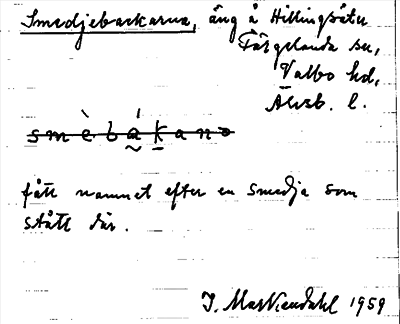 Smedjebackarna, äng å Hillingsäter
Färgelanda sn,
Valbo hd,
Älvsb. l.
smèbákano
fått namnet efter en smedja som
stått där.
J. MarKendahl 1959